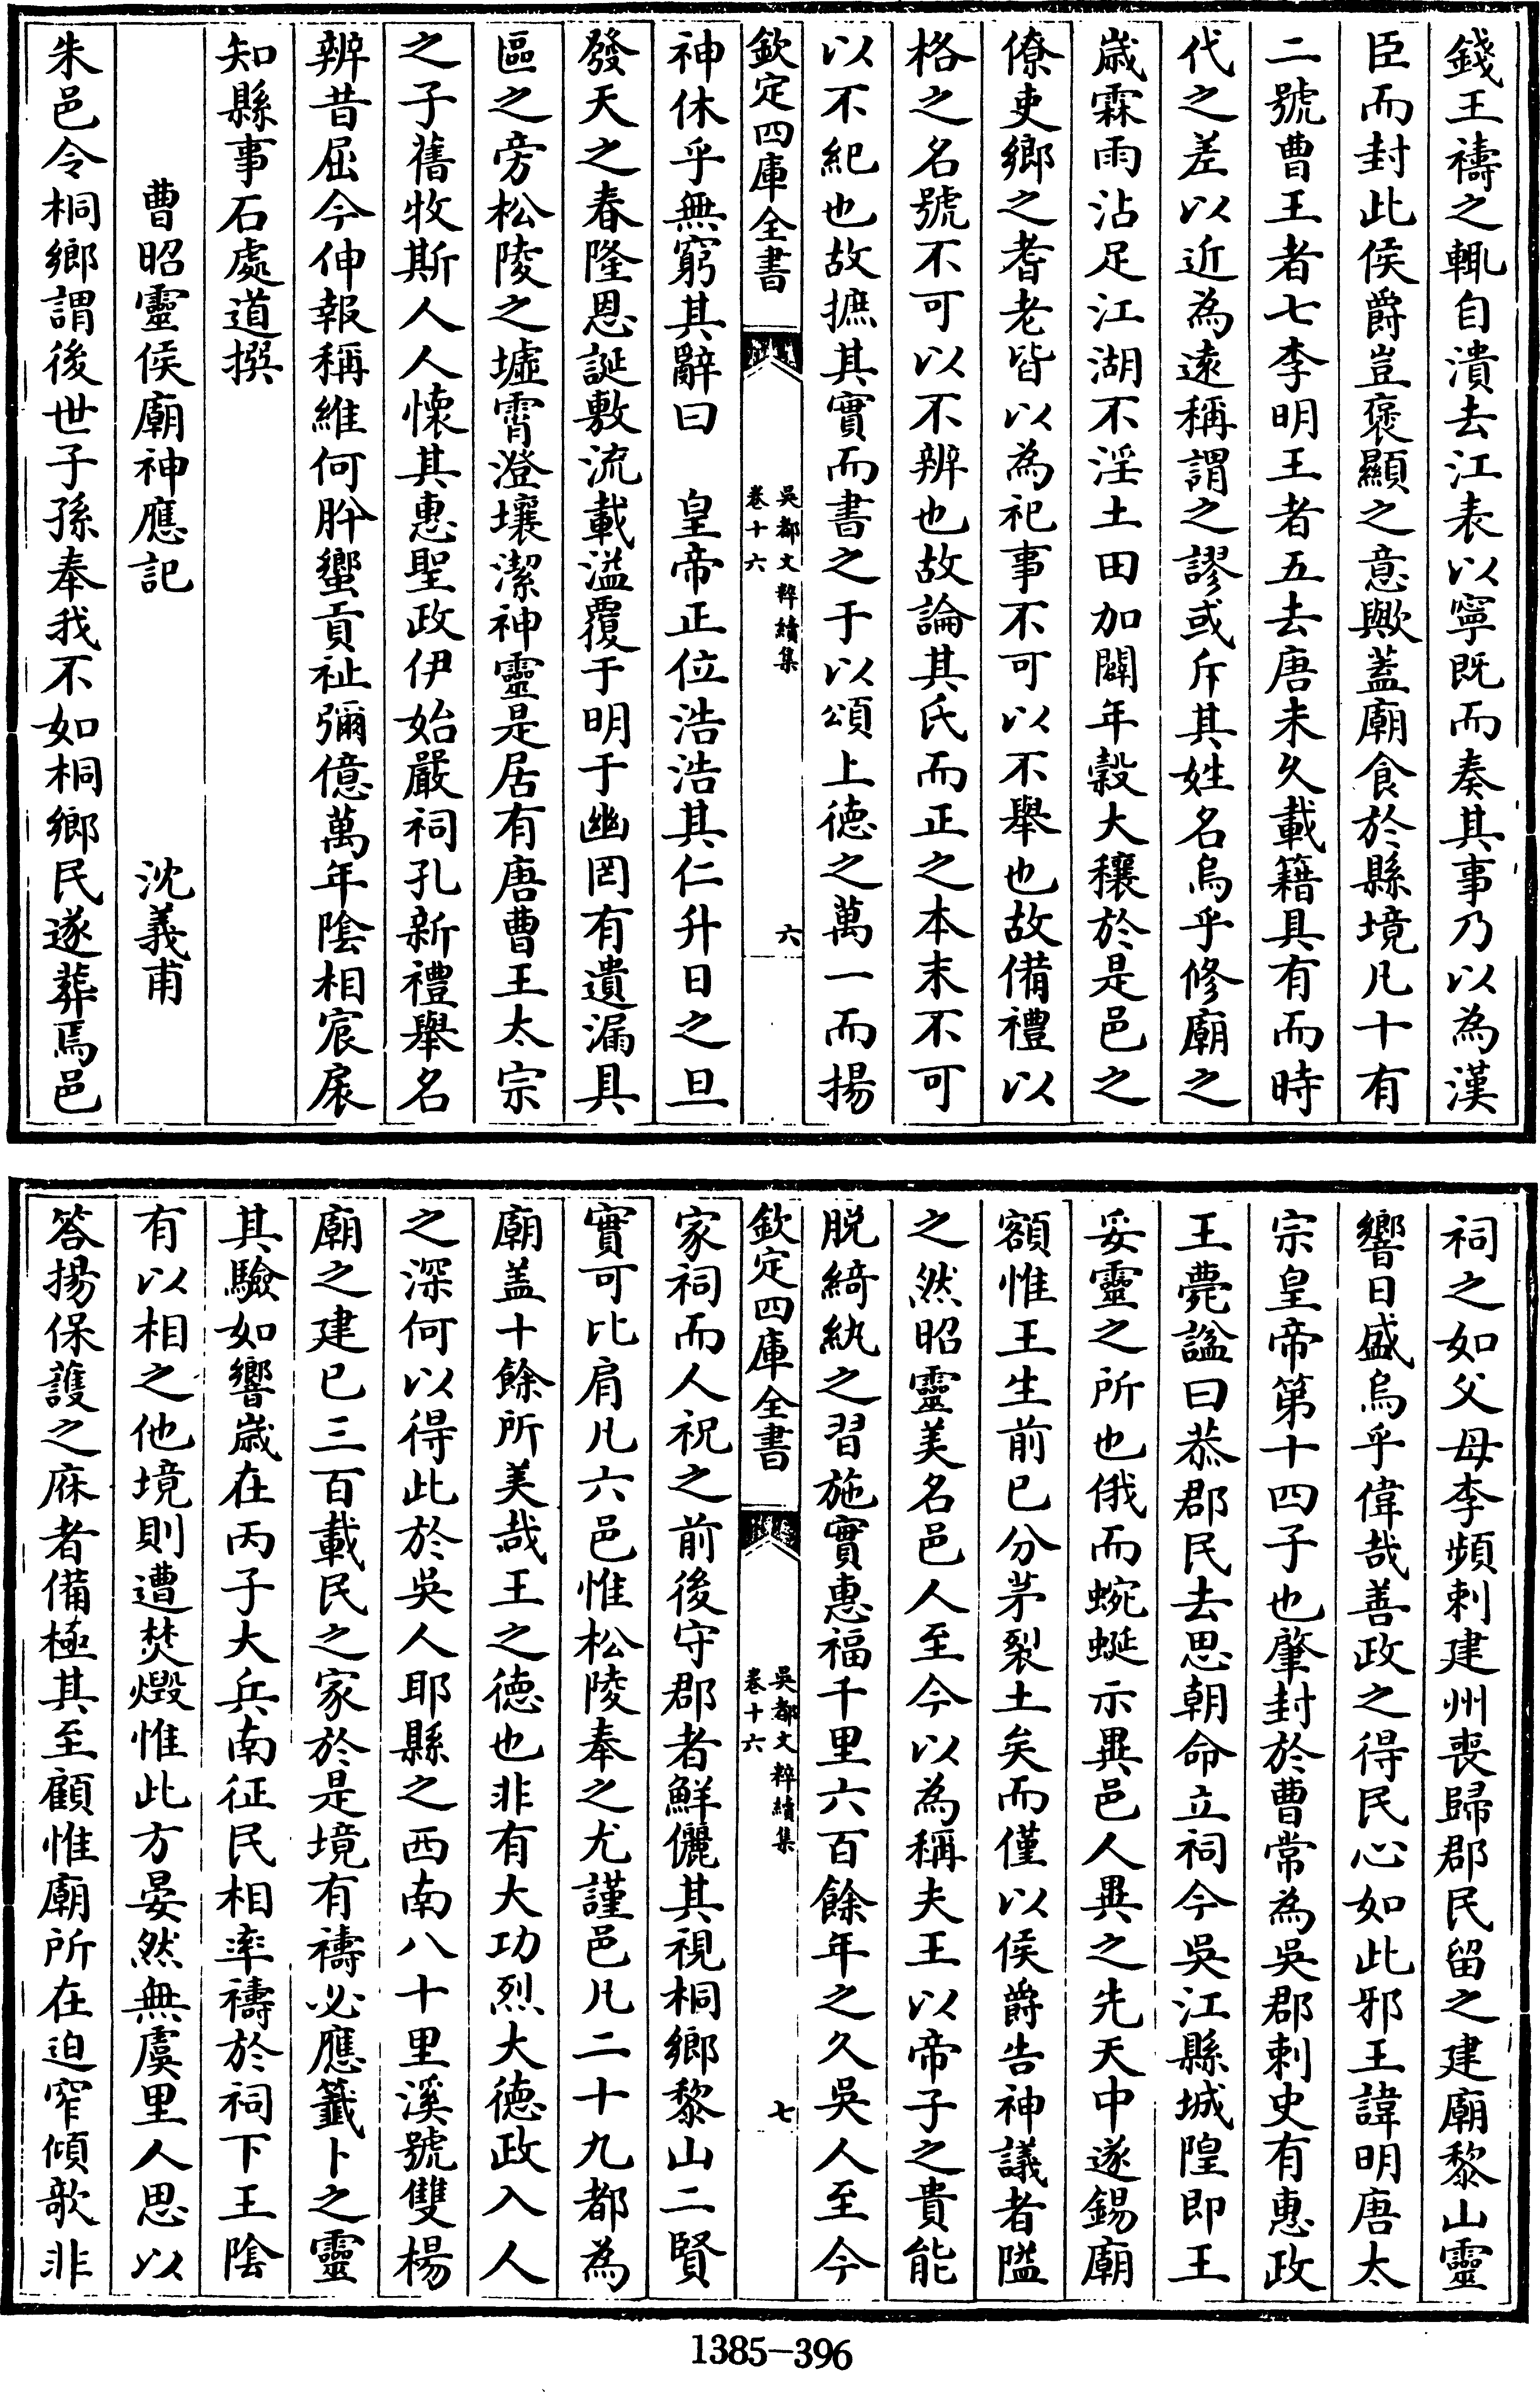 錢王禱之輒自潰去江表以寧既而奏其事乃以為漢
臣而封此侯爵豈褒顯之意歟蓋廟食於縣境凡十有
二號曹王者七李明王者五去唐未久載籍具有而時
代之差以近為遠稱謂之謬或斥其姓名烏乎修廟之
歲霖雨沾足江湖不淫土田加闢年穀大穰於是邑之
僚吏鄉之耆老皆以為祀事不可以不舉也故備禮以
格之名號不可以不辨也故論其氏而正之本末不可
以不紀也故摭其實而書之于以頌上德之萬一而揚
欽定四庫全書
吳都文粹續集
卷十六
六
神休乎無窮其辭曰　皇帝正位浩浩其仁升日之旦
發天之春隆恩誕敷流載溢覆于明于幽罔有遺漏具
區之旁松陵之墟霄澄壤潔神靈是居有唐曹王太宗
之子舊牧斯人人懷其惠聖政伊始嚴祠孔新禮舉名
辨昔屈今伸報稱維何肸蠁貢祉彌億萬年陰相宸扆
知縣事石處道撰
曹昭靈侯廟神應記　沈義甫
朱邑令桐鄉謂後世子孫奉我不如桐鄉民遂葬焉邑
祠之如父母李頻刺建州喪歸郡民留之建廟黎山靈
響日盛烏乎偉哉善政之得民心如此邪王諱明唐太
宗皇帝第十四子也肇封於曹常為吳郡刺史有惠政
王薨諡曰恭郡民去思朝命立祠今吳江縣城隍即王
妥靈之所也俄而蜿蜒示異邑人異之先天中遂錫廟
額惟王生前已分茅裂土矣而僅以侯爵告神議者隘
之然昭靈美名邑人至今以為稱夫王以帝子之貴能
脫綺紈之習施實惠福千里六百餘年之久吳人至今
欽定四庫全書
吳都文粹續集
卷十六
七
家祠而人祝之前後守郡者鮮儷其視桐鄉黎山二賢
實可比肩凡六邑惟松陵奉之尤謹邑凡二十九都為
廟盖十餘所美哉王之德也非有大功烈大德政入人
之深何以得此於吳人耶縣之西南八十里溪號雙楊
廟之建已三百載民之家於是境有禱必應籤卜之靈
其驗如響歲在丙子大兵南征民相率禱於祠下王陰
有以相之他境則遭焚燬惟此方晏然無虞里人思以
答揚保護之庥者備極其至顧惟廟所在迫窄傾欹非
1385-396